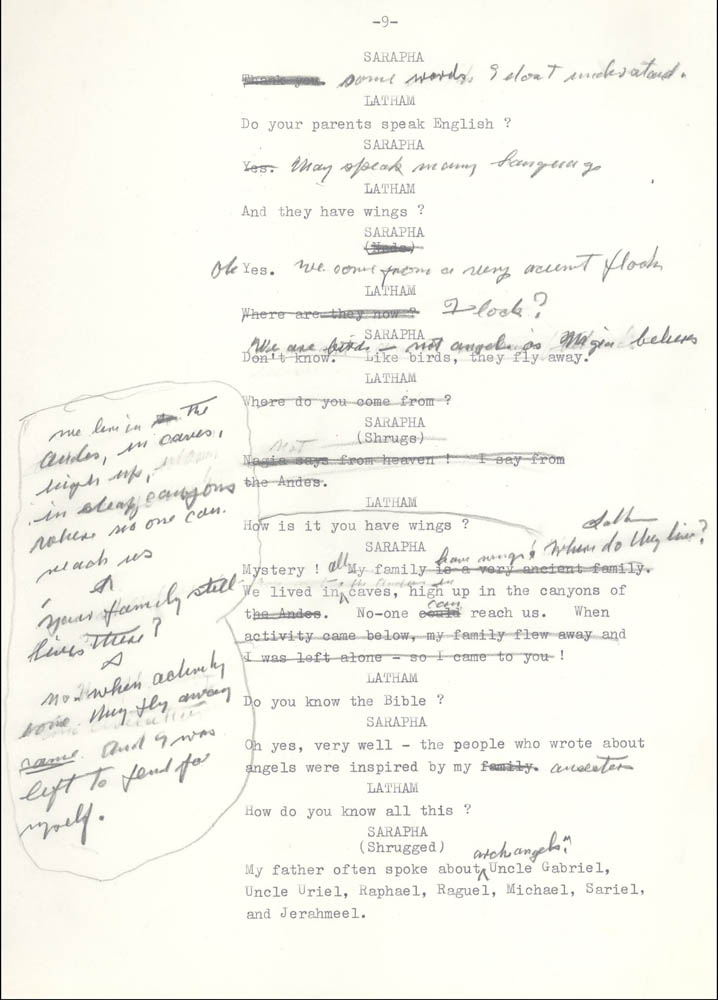 -9-
SARAPHA
Thank you. some words I don't understand.
LATHAM
Do your parents speak English ?
SARAPHA
Yes. They speak many languags
LATHAM
And they have wings ?
SARAPHA
(Nods)
Oh Yes. We come from a very ancient flock
LATHAM
Where are they now ? Flock?
SARAPHA
We are birds - not angels as Nagia believes
Don't know. Like birds, they fly away.
LATHAM
Where do you come from ?
SARAPHA
(Shrugs)
not
Nagia says from heaven ! I say from
the Andes.
LATHAM
How is it you have wings ?
SARAPHA
Mystery ! all My family is a very ancient family. have wings! Where do they live?
We lived in caves, high up in the canyons of
the Andes. No-one could can reach us. When
activity came below, my family flew away and
I was left alone - so I came to you !
LATHAM
Do you know the Bible ?
SARAPHA
Oh yes, very well - the people who wrote about
angels were inspired by my family. ancester
LATHAM
How do you know all this ?
SARAPHA
(Shrugged)
My father often spoke about archangels Uncle Gabriel,
Uncle Uriel, Raphael, Raguel, Michael, Sariel,
and Jerahmeel.
we live in the
Andes, in caves,
high up,
in steep canyons
where no one can
reach us
L
your family still
lives there?
S
no - when activity
come they fly away
came and I was
left to fend for
myself.